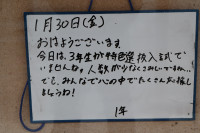 1月30日(金)
おはようございます。
今日は、3年生が特色選抜入試で
いません。人数が少なくさみしいですね…。
でも、みんなで心の中でたくさん応援し
ましょうね!
1年